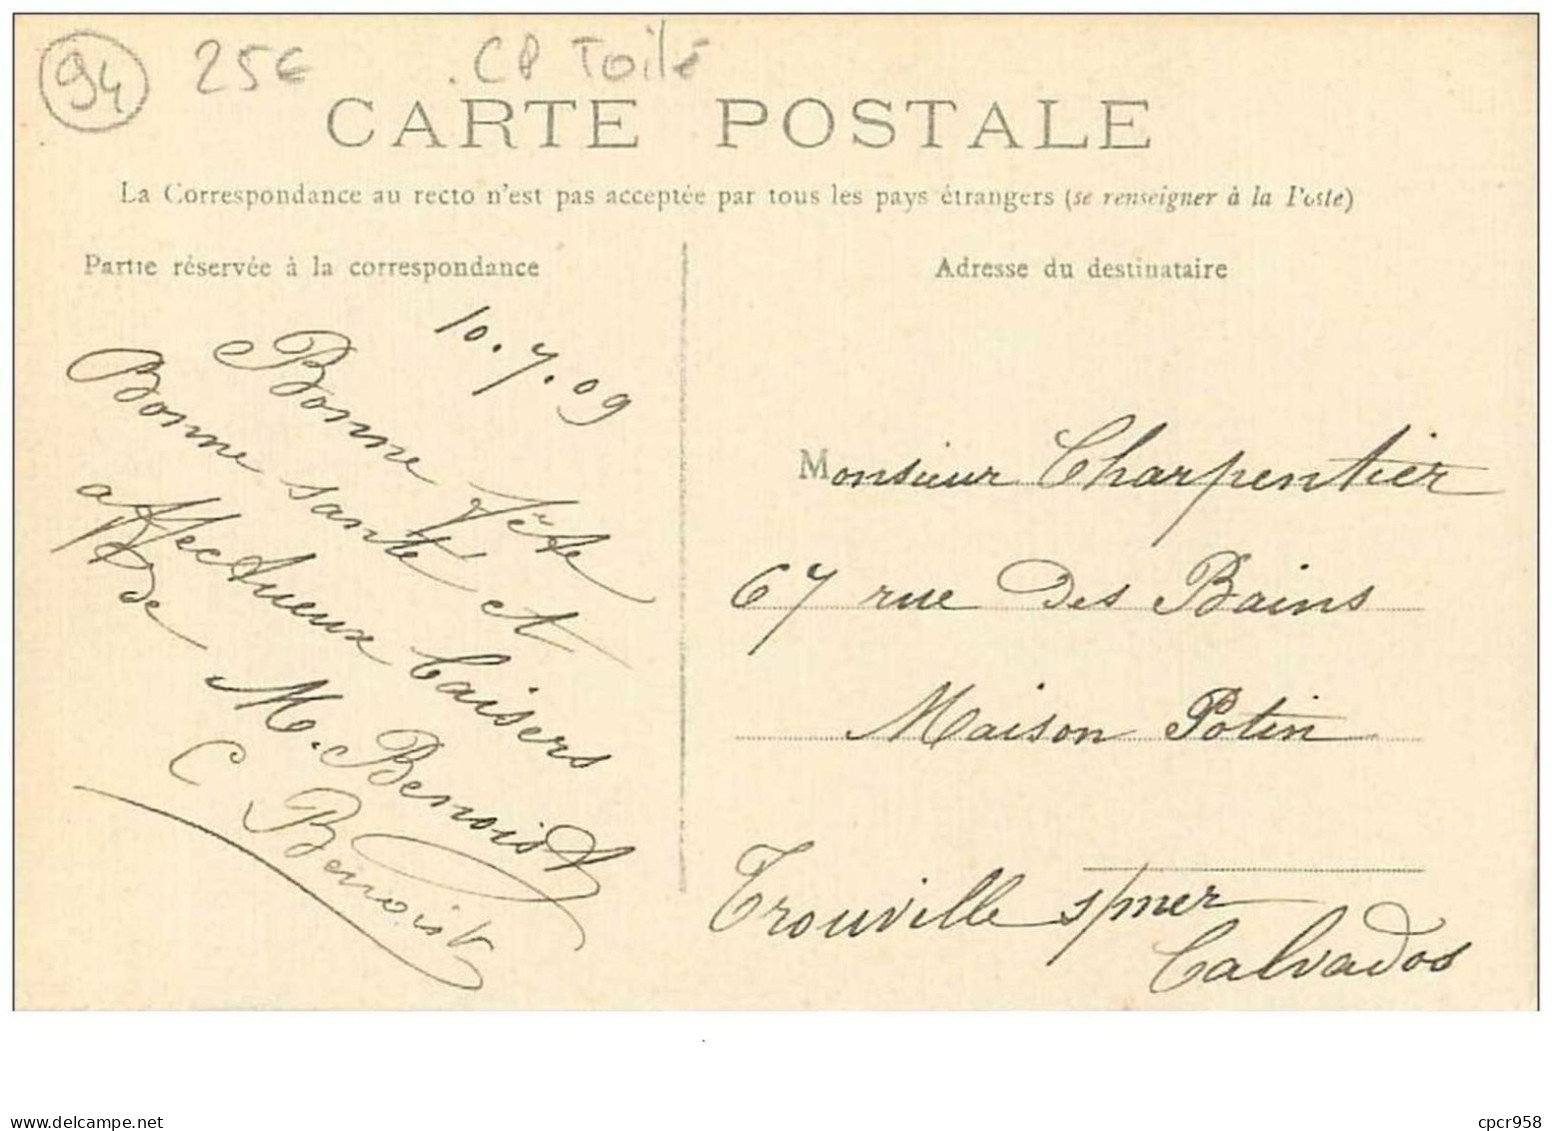 94 25€ CP Toilé
CARTE POSTALE
La Correspondance au recto n'est pas acceptée par tous les pays étrangers (se renseigner à la Poste)
Partie réservée à la correspondance
10.7.09
Bonne Fête
Bonne santé et
affectueux baisers
de M. Benoist
C Benoist
Adresse du destinataire
Monsieur Charpentier
67 rue des Bains
Maison Potin
Trouville s/mer
Calvados
delcampe.net
cpcr958